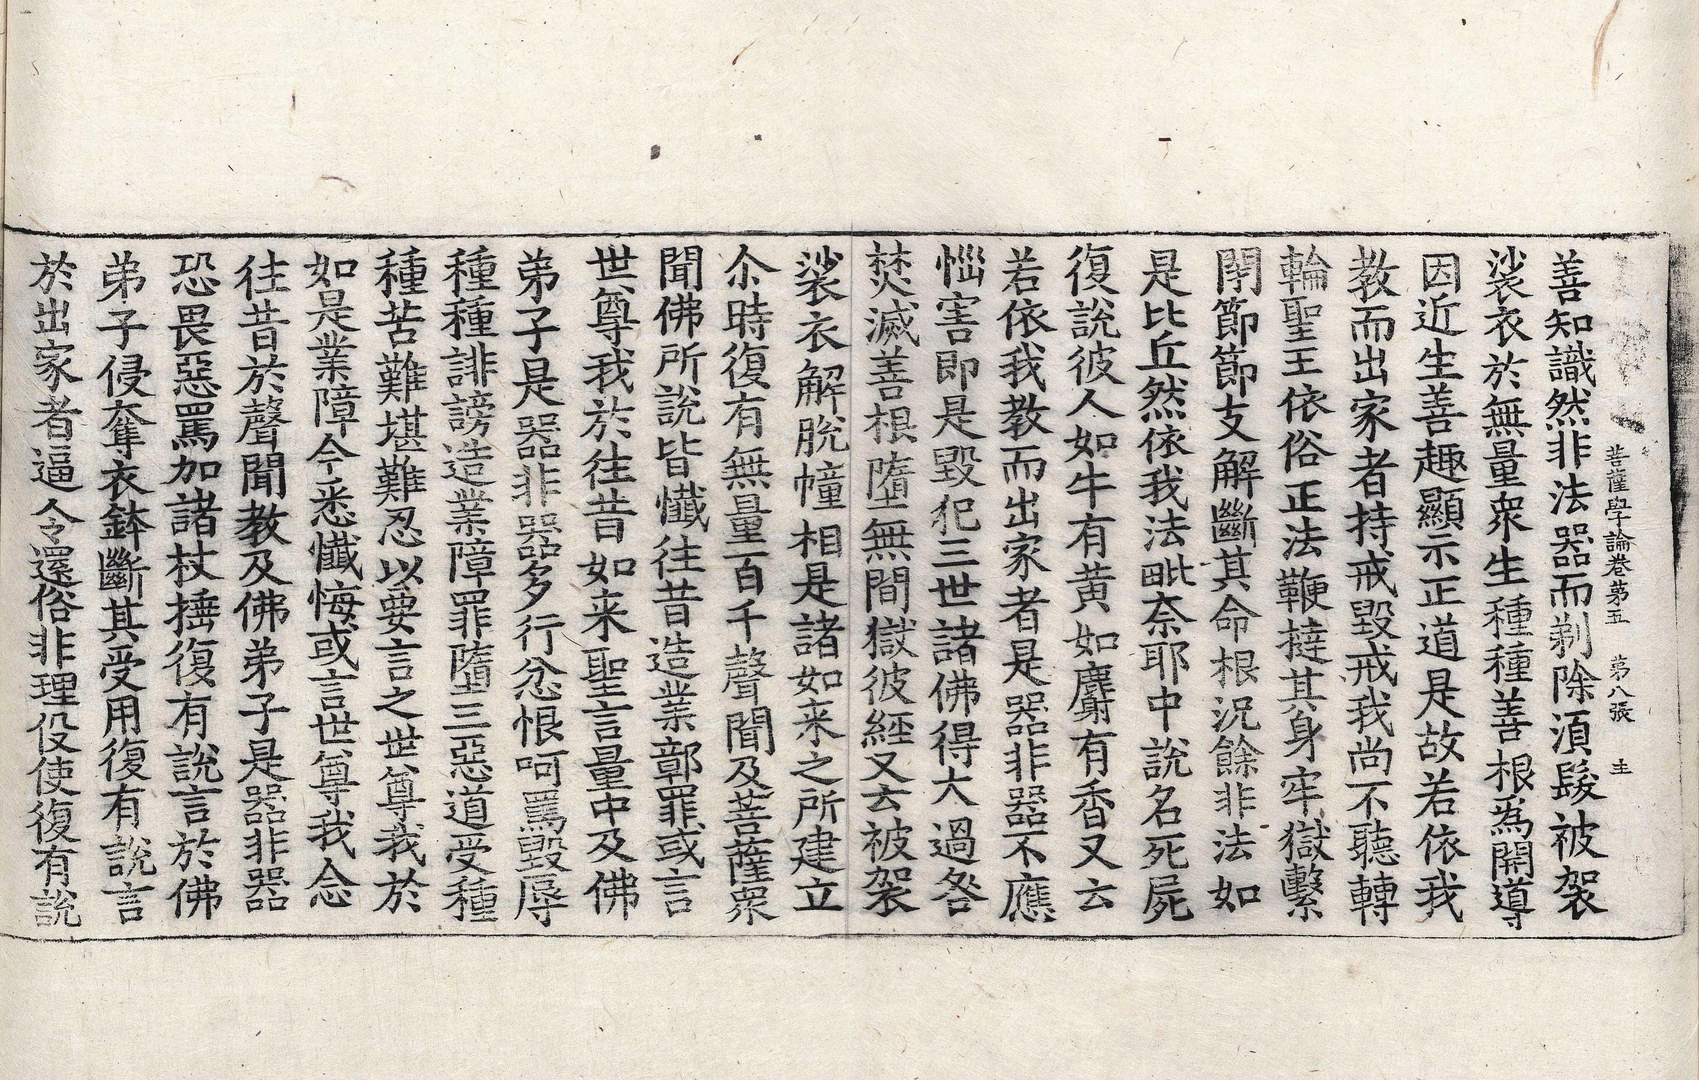 菩薩學論卷第五　第八張　圭
善知識然非法器而剃除湏髮被袈
裟衣於無量衆生種種善根為開導
因近生善趣顯示正道是故若依我
教而出家者持戒毀戒我尚不聽轉
輪聖王依俗正法鞭撻其身牢獄繫
閉節節支解斷其命根況餘非法如
是比丘然依我法毗奈耶中說名死屍
復說彼人如牛有黄如麝有香又云
若依我教而出家者是器非器不應
惱害即是毀犯三世諸佛得大過咎
焚滅善根墮無間獄彼經又云被袈
裟衣解脫幢相是諸如来之所建立
尒時復有無量百千聲聞及菩薩衆
聞佛所說皆懺往昔造業鄣罪或言
世尊我於往昔如来聖言量中及佛
弟子是器非器多行忿恨呵罵毀辱
種種誹謗造業障罪墮三惡道受種
種苦難堪難忍以要言之世尊我於
如是業障今悉懺悔或言世尊我念
往昔於聲聞教及佛弟子是器非器
恐畏惡罵加諸杖捶復有說言於佛
弟子侵奪衣鉢斷其受用復有說言
於出家者逼令還俗非理役使復有說